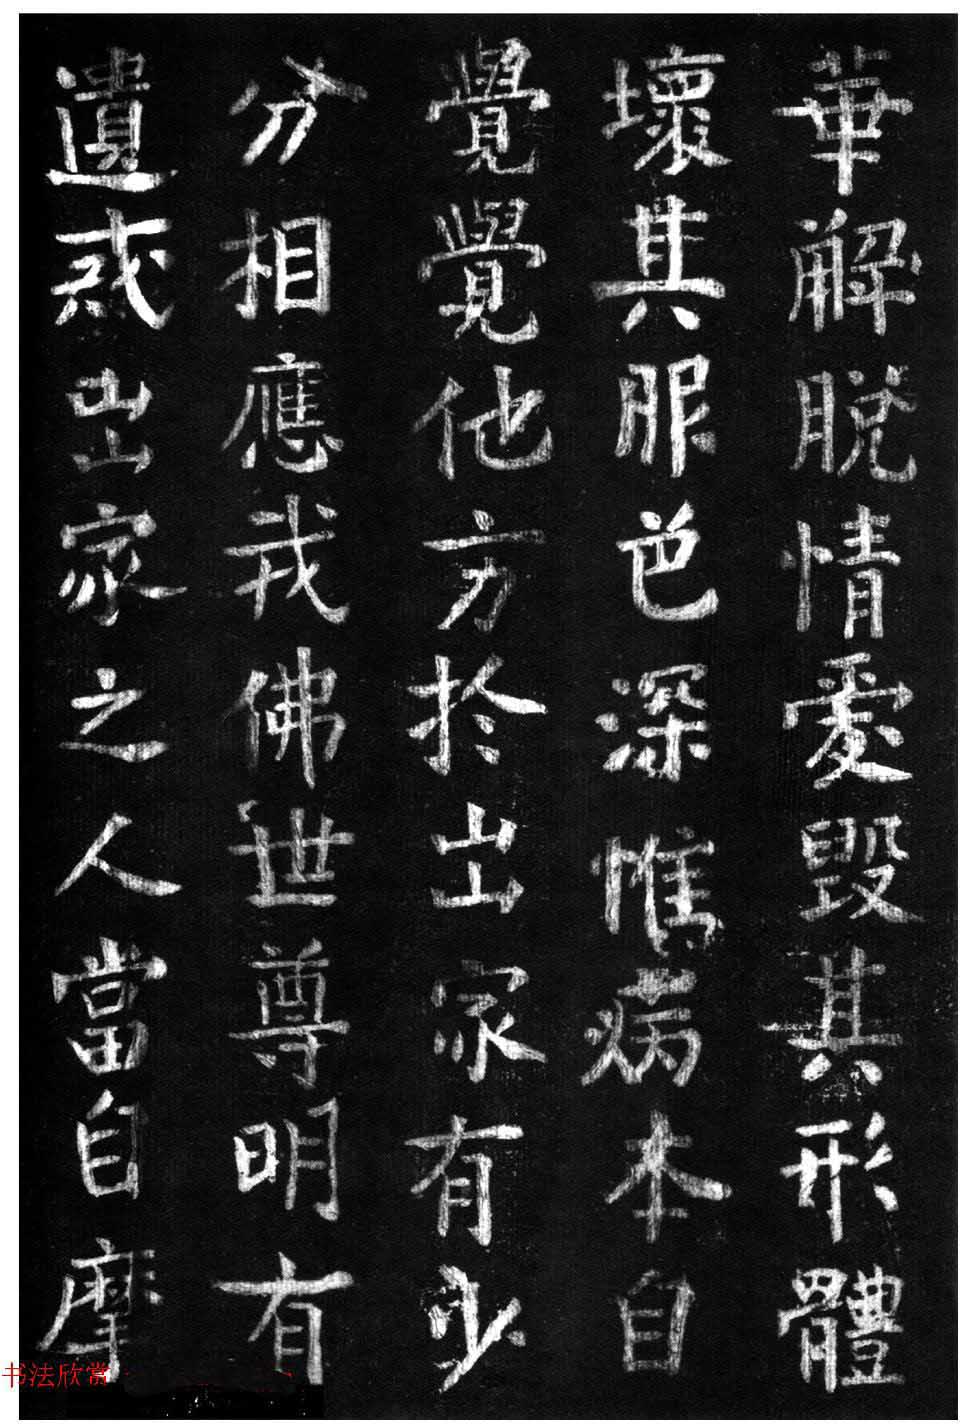 華解脫情愛毀其形體
壞其服色深惟病本自
覺覺他方於出家有少
分相應我佛世尊明有
遺戒出家之人當自摩
书法欣赏